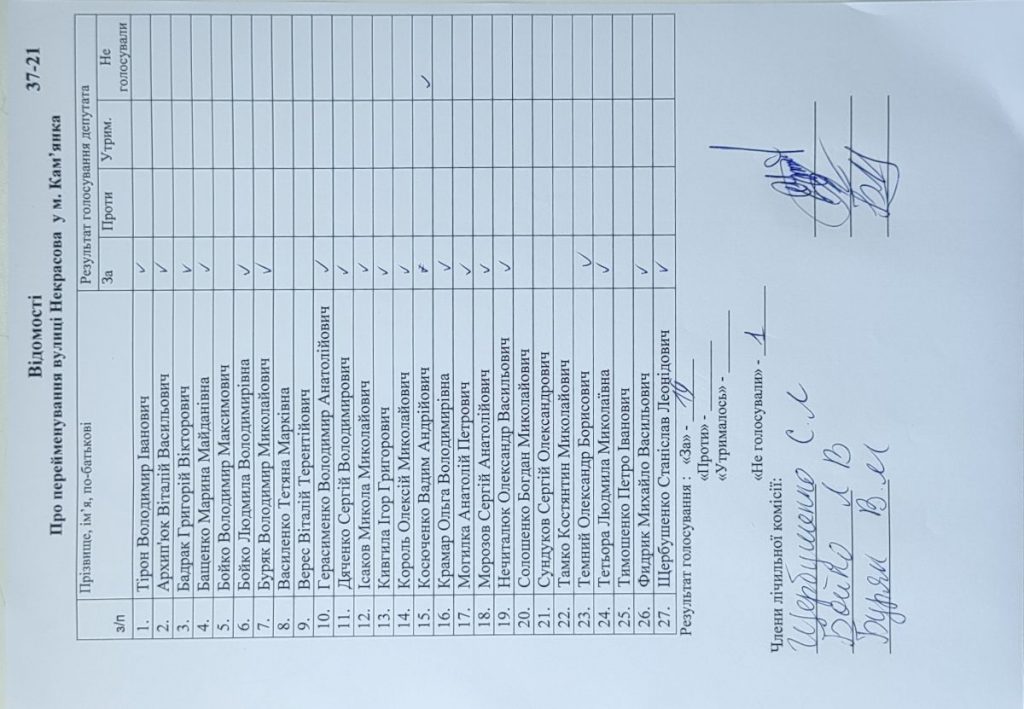 Відомості
37-21
Про перейменування вулиці Некрасова у м. Кам’янка
з/п Прізвище, ім’я, по-батькові Результат голосування депутата
За Проти Утрим. Не голосували
1. Тірон Володимир Іванович ✓
2. Архип'юк Віталій Васильович ✓
3. Бадрак Григорій Вікторович ✓
4. Бащенко Марина Майданівна ✓
5. Бойко Володимир Максимович
6. Бойко Людмила Володимирівна ✓
7. Буряк Володимир Миколайович ✓
8. Василенко Тетяна Марківна
9. Верес Віталій Терентійович
10. Герасименко Володимир Анатолійович ✓
11. Дяченко Сергій Володимирович ✓
12. Ісаков Микола Миколайович ✓
13. Кивгила Ігор Григорович ✓
14. Король Олексій Миколайович ✓
15. Косюченко Вадим Андрійович ✓
16. Крамар Ольга Володимирівна ✓
17. Могилка Анатолій Петрович ✓
18. Морозов Сергій Анатолійович ✓
19. Нечиталюк Олександр Васильович ✓
20. Солошенко Богдан Миколайович
21. Сундуков Сергій Олександрович
22. Тамко Костянтин Миколайович
23. Темний Олександр Борисович ✓
24. Тетьора Людмила Миколаївна ✓
25. Тимошенко Петро Іванович
26. Фидрик Михайло Васильович ✓
27. Щербушенко Станіслав Леонідович ✓
Результат голосування : «За» - 19
«Проти» -
«Утрималось» -
«Не голосували» - 1
Члени лічильної комісії:
Щербушенко С.Л
Бойко Л В
Буряк В.М